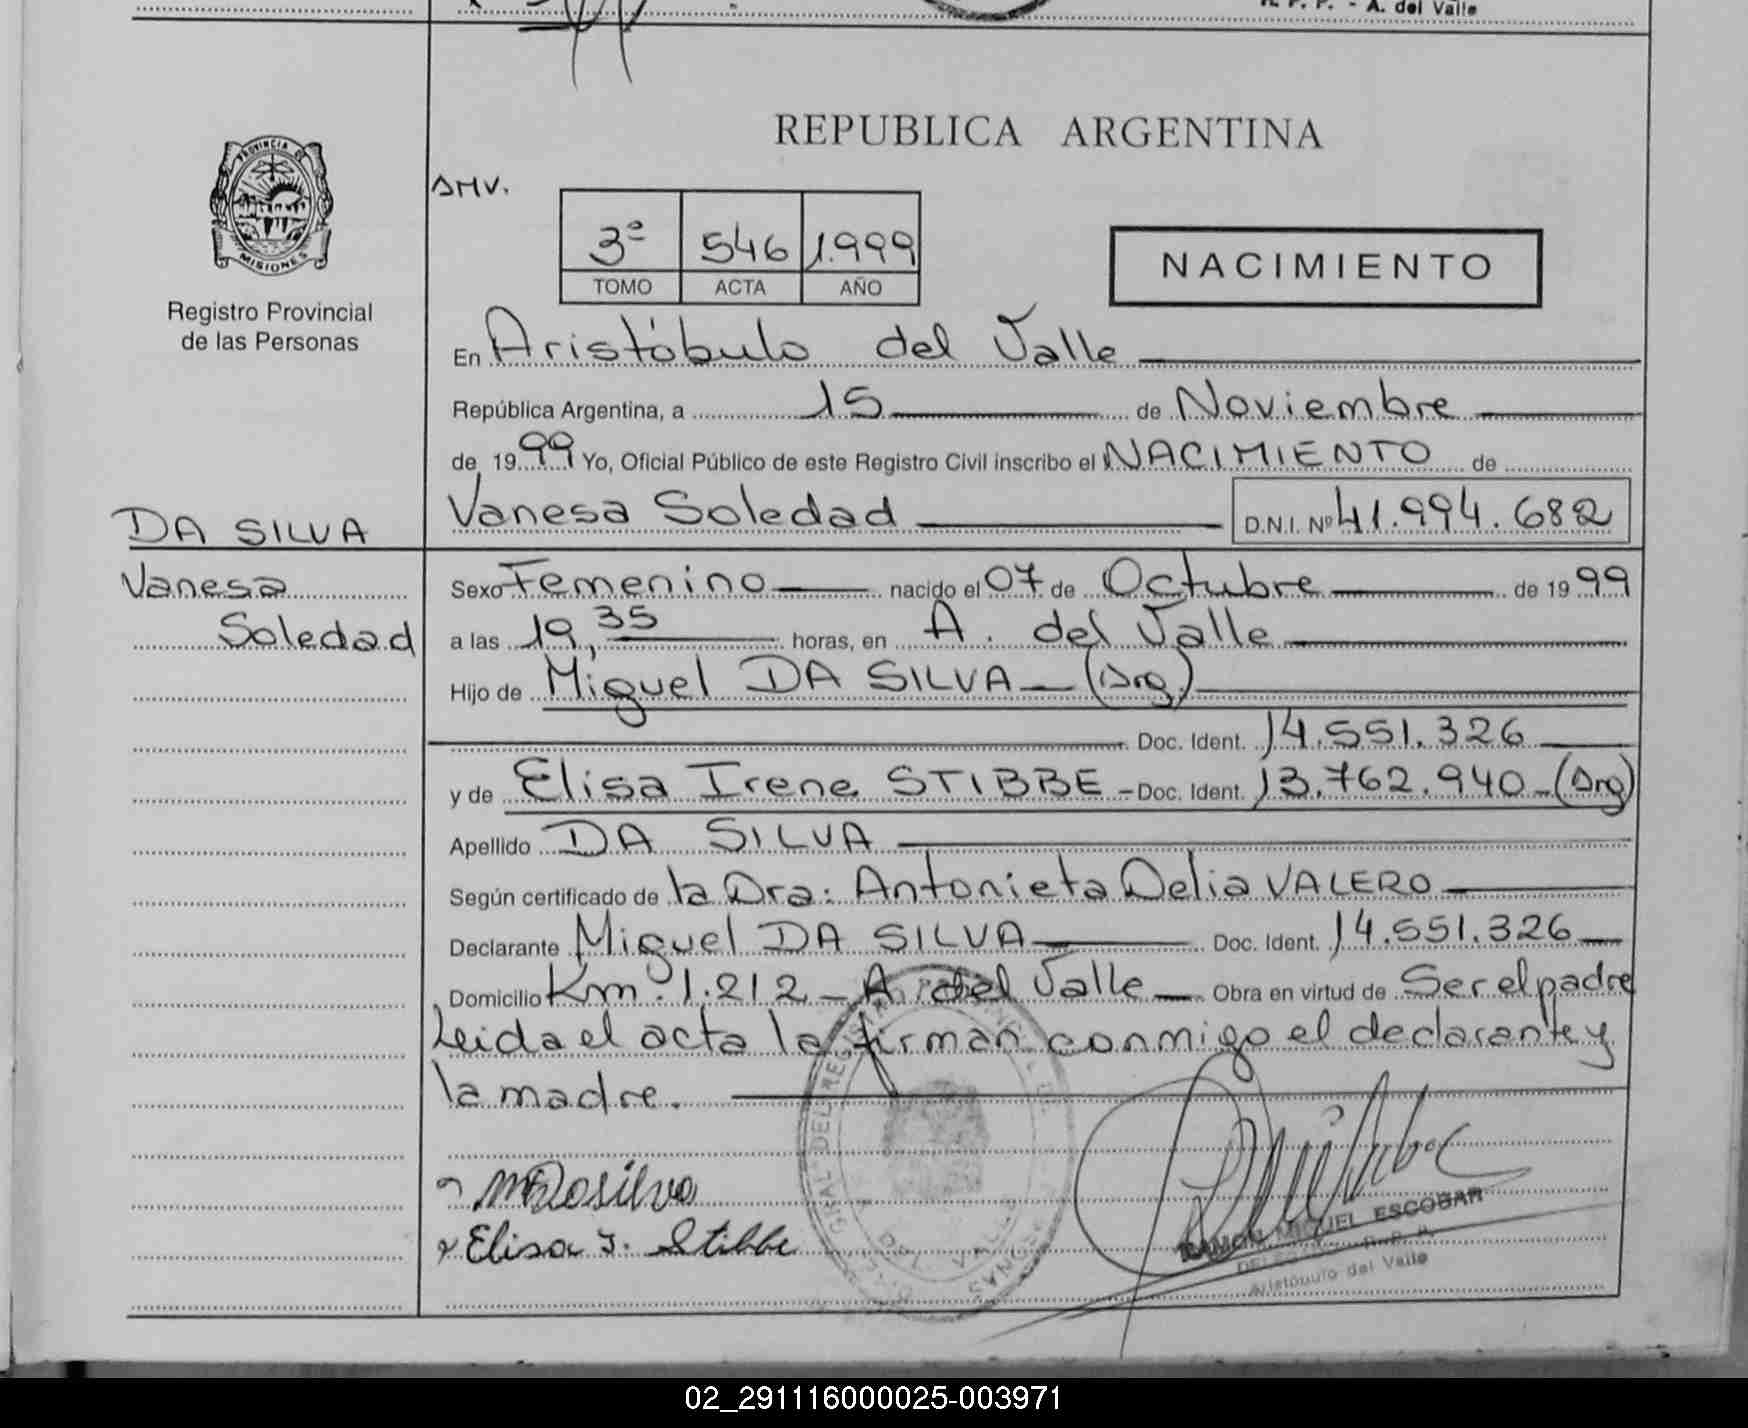 R. P. P. - A. del Valle
REPUBLICA ARGENTINA
PROVINCIA DE
MISIONES
Registro Provincial
de las Personas
AMV.
3º 546 1.999
TOMO ACTA AÑO
NACIMIENTO
En Aristóbulo del Valle
República Argentina, a 15 de Noviembre
de 1999 Yo, Oficial Público de este Registro Civil inscribo el NACIMIENTO de
Vanesa Soledad D.N.I. Nº 41.994.682
DA SILVA
Vanesa
Soledad
Sexo Femenino nacido el 07 de Octubre de 1999
a las 19,35 horas, en A. del Valle
Hijo de Miguel DA SILVA (Arg.)
Doc. Ident. 14.551.326
y de Elisa Irene STIBBE - Doc. Ident. 13.762.940 - (Arg)
Apellido DA SILVA
Según certificado de la Dra: Antonieta Delia VALERO
Declarante Miguel DA SILVA Doc. Ident. 14.551.326
Domicilio Km. 1.212 - A. del Valle Obra en virtud de Ser el padre
Leida el acta la firman conmigo el declarante y
la madre.
Elisa I. Stibbe
RAMON MIGUEL ESCOBAR
Aristóbulo del Valle
02_291116000025-003971